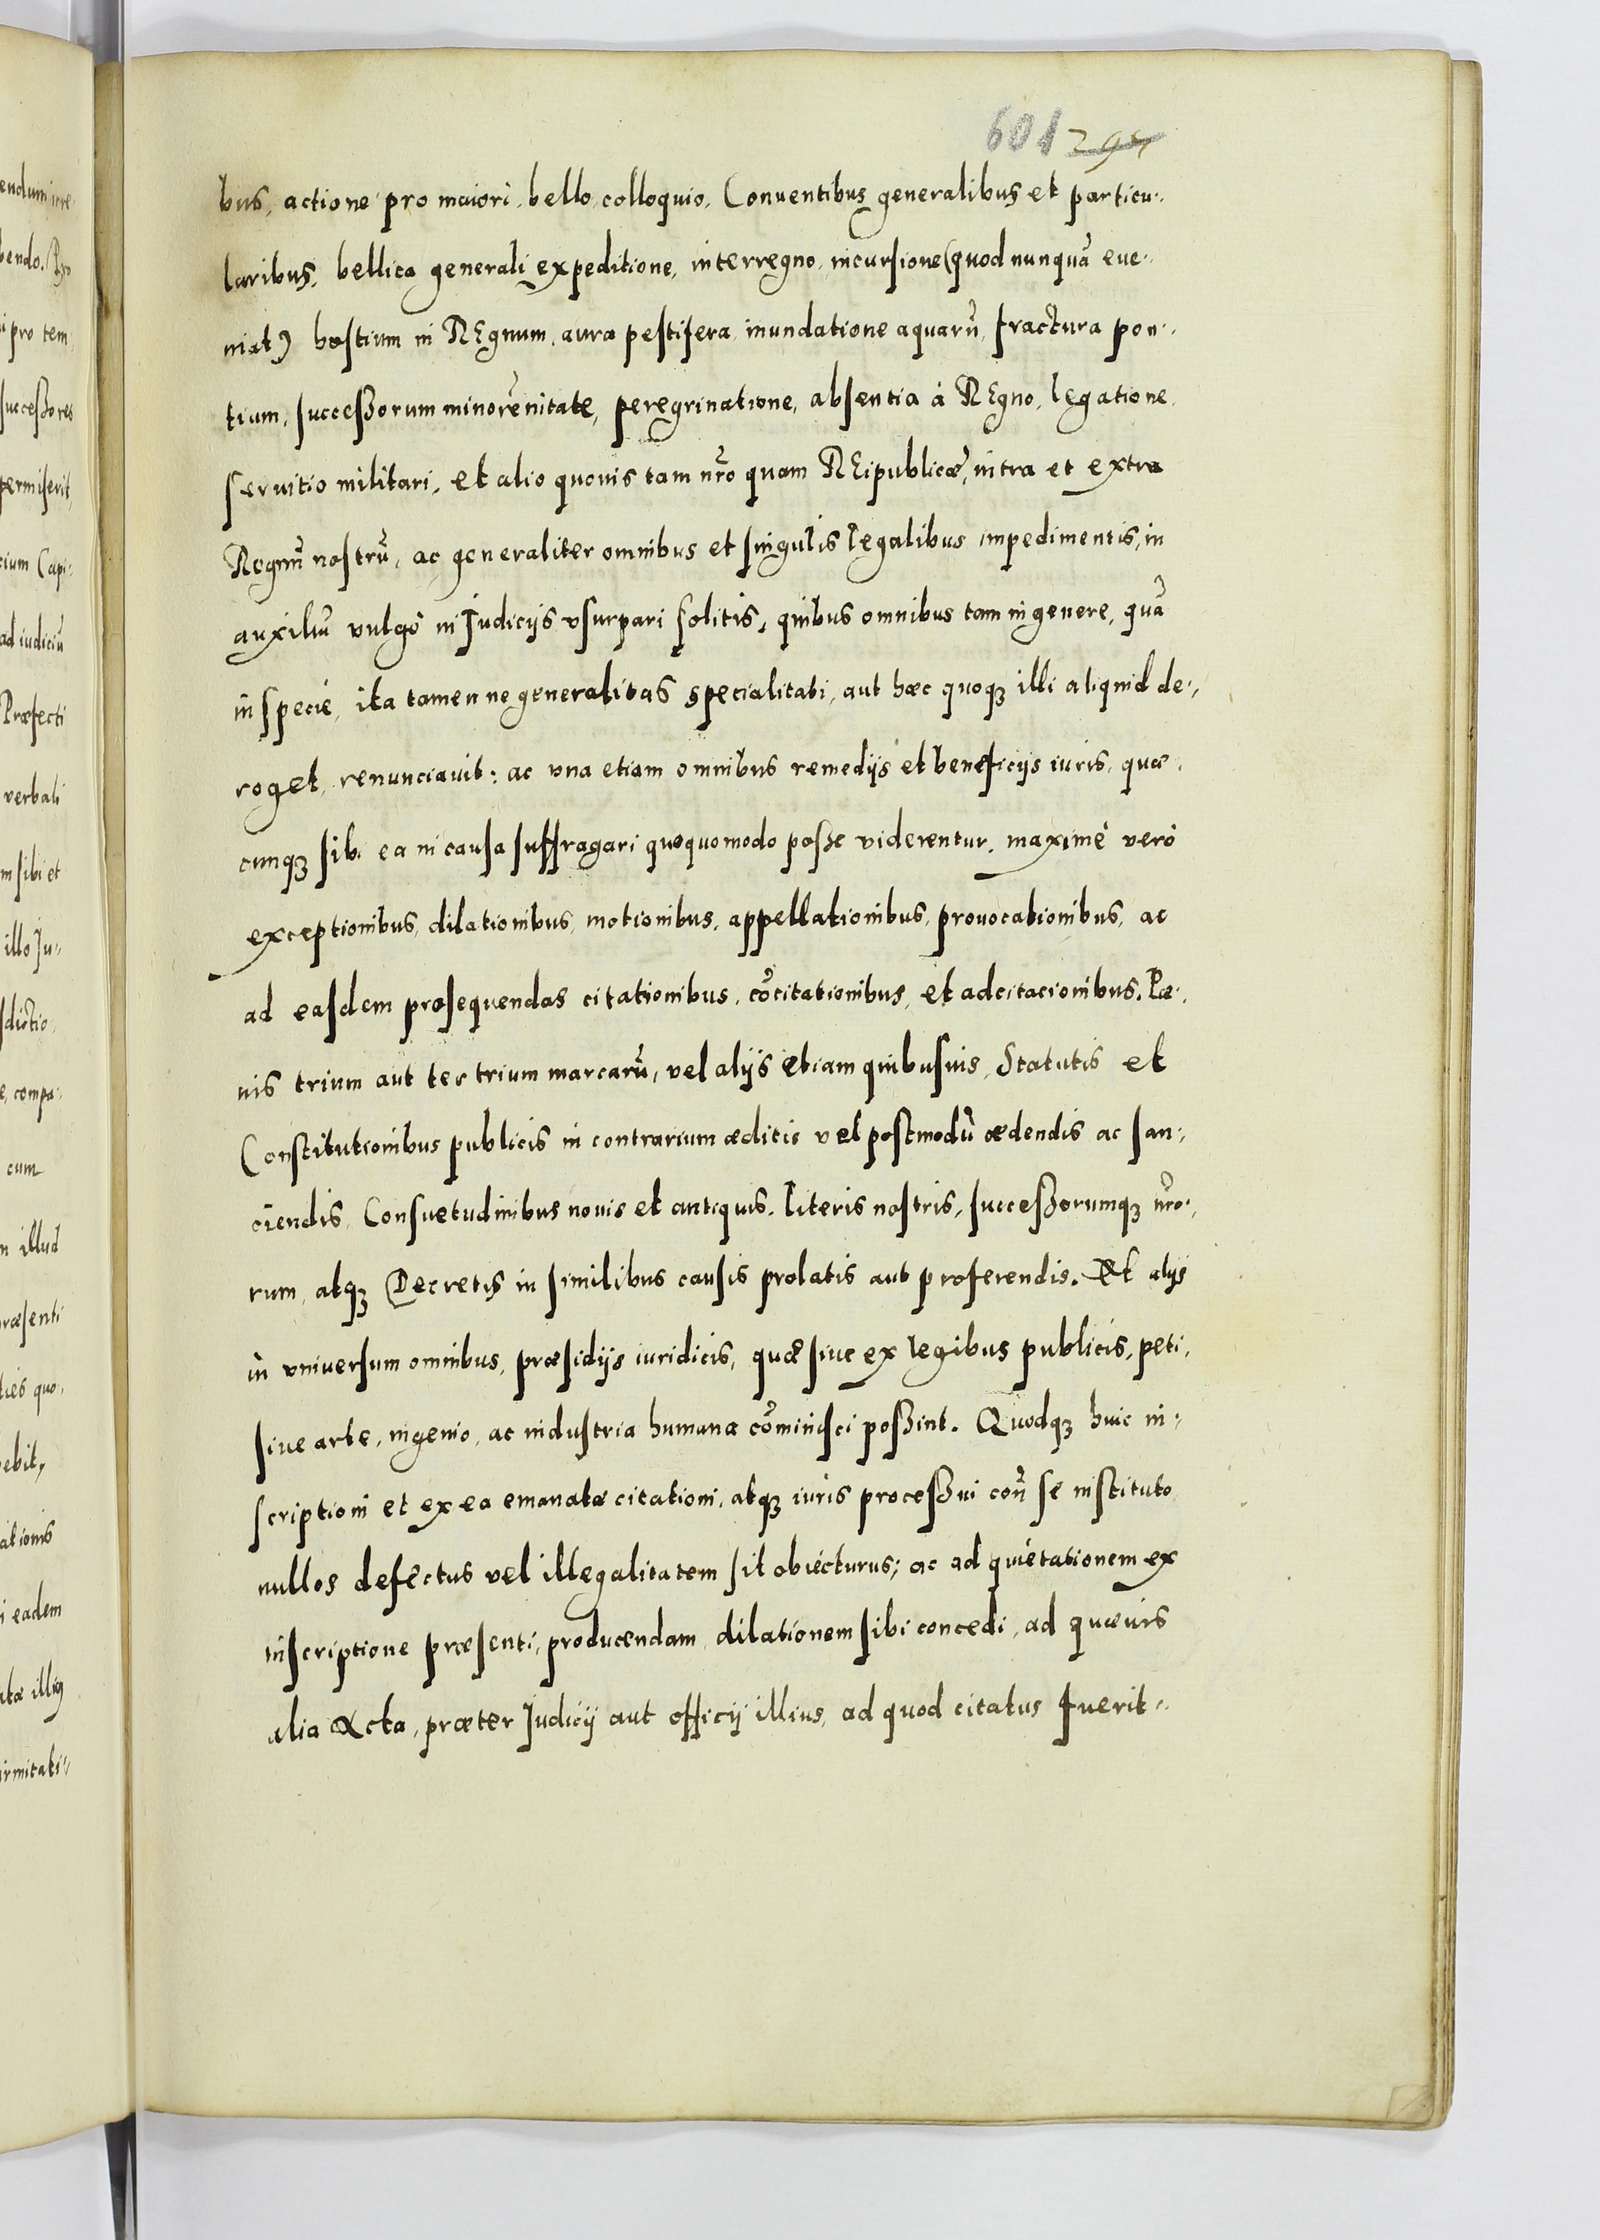 601 294
bus, actione pro maiori, bello, colloquio, Conuentibus generalibus et particu-
laribus, bellica generali expeditione, interregno, incursione (quod nunquã eue-
niat) hostium in REgnum, aura pestifera, inundatione aquarũ, fractura pon-
tium, successorum minorẽnitate, peregrinatione, absentia à REgno, legatione,
seruitio militari, et alio quouis tam nr̃o quam REipublicæ, intra et extra
Regnũ nostrũ, ac generaliter omnibus et singulis legalibus impedimentis, in
auxiliũ vulgò in Iudicijs vsurpari solitis, quibus omnibus tam in genere, quã
in specie, ita tamen ne generalitas specialitati, aut hæc quoqꝫ illi aliquid de-
roget, renunciauit: ac vna etiam omnibus remedijs et beneficijs iuris, quæ-
cunqꝫ sibi ea in causa suffragari quoquomodo posse viderentur, maximè verò
exceptionibus, dilationibus, motionibus, appellationibus, prouocationibus, ac
ad easdem prosequendas citationibus, cõcitationibus, et adcitacionibus. Pæ-
nis trium aut ter trium marcarũ, vel alijs etiam quibusuis, Statutis et
Constitutionibus publicis in contrarium æditis vel postmodũ ædendis ac san-
ciendis, Consuetudinibus nouis et antiquis, literis nostris, successorumqꝫ nr̃o-
rum, atqꝫ Decretis in similibus causis prolatis aut proferendis. Et alijs
in vniuersum omnibus, præsidijs iuridicis, quæ siue ex legibus publicis, peti,
siue arte, ingenio, ac industria humana cõminisci possint. Quodqꝫ huic in-
scriptioni et ex ea emanatæ citationi, atqꝫ iuris processui coñ se instituto
nullos defectus vel illegalitatem sit obiecturus; ac ad quietationem ex
inscriptione præsenti, producendam, dilationem sibi concedi, ad quæuis
alia Acta, præter Iudicij aut officij illius, ad quod citatus fuerit-